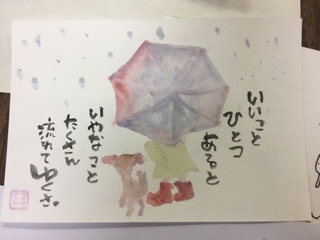 いいこと
ひとつ
あると
いやなこと
たくさん
流れてゆくさ